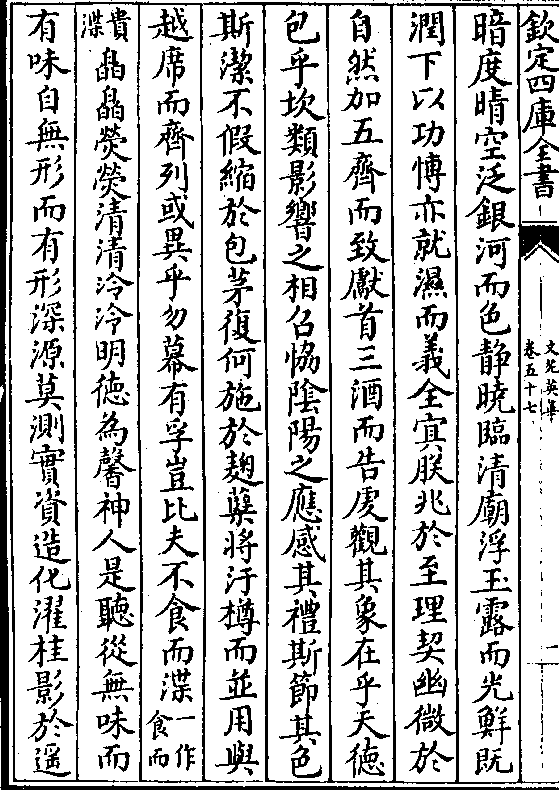 欽定四庫全書
文苑英華
卷五十七
一
暗度晴空泛銀河而色静曉臨清廟浮玉露而光鮮既
潤下以功慱亦就濕而義全寘朕兆於至理契幽微於
自然加五齊而致獻首三酒而告䖍觀其象在乎天徳
包乎坎類影響之相召恊隂陽之應感其禮斯節其色
斯潔不假縮於包茅復何施於麹糵將汙樽而並用與
越席而齊列或異乎勿幕有孚豈比夫不食而渫一作食而
貴渫皛皛熒熒清清泠泠明徳為馨神人是聽從無味而
有味自無形而有形深源莫測實資造化濯桂影於遥